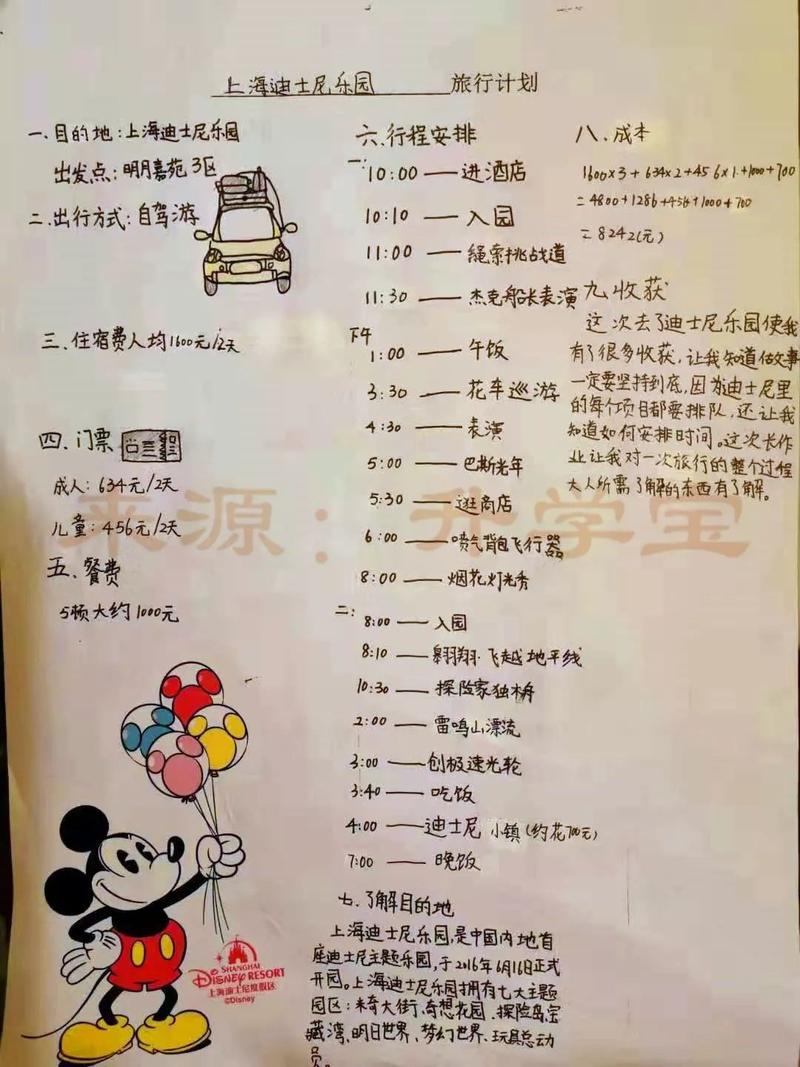 上海迪士尼乐园 旅行计划
一、目的地:上海迪士尼乐园
出发点:明月嘉苑3区
二、出行方式:自驾游
三、住宿费人均1600元/2天
四、门票
成人:634元/2天
儿童:456元/2天
五、餐费
5顿大约1000元
六、行程安排
一:
10:00——进酒店
10:10——入园
11:00——绳索挑战道
11:30——杰克船长表演
下午
1:00——午饭
3:30——花车巡游
4:30——表演
5:00——巴斯光年
5:30——逛商店
6:00——喷气背包飞行器
8:00——烟花灯光秀
二:
8:00——入园
8:10——翱翔·飞越地平线
10:30——探险家独木舟
2:00——雷鸣山漂流
3:00——创极速光轮
3:40——吃饭
4:00——迪士尼小镇(约花700元)
7:00——晚饭
七、了解目的地
上海迪士尼乐园,是中国内地首
座迪士尼主题乐园,于2016年6月16日正式
开园。上海迪士尼乐园拥有七大主题
园区:米奇大街、奇想花园、探险岛、宝
藏湾、明日世界、梦幻世界、玩具总动
员。
八、成本
1600×3+634×2+456×1+1000+700
=4800+1286+456+1000+700
=8242(元)
九、收获
这次去了迪士尼乐园使我
有了很多收获,让我知道做故事
一定要坚持到底,因为迪士尼里
的每个项目都要排队,还让我
知道如何安排时间。这次长作
业让我对一次旅行的整个过程
大人所需了解的东西有了解。
来源:升学宝
SHANGHAI
DISNEY RESORT
上海迪士尼度假区
©Disney